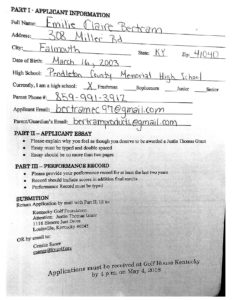 PART I - APPLICANT INFORMATION
Full Name: Emilie Claire Bertram
Address: 308 Miller Rd
City: Falmouth State: KY Zip: 41040
Date of Birth: March 16, 2003
High School: Pendleton County Memorial High School
Currently, I am a high school: X Freshman Sophomore Junior Senior
Parent Phone #: 859-991-3912
Applicant Email: bertramec97@gmail.com
Parent/Guardian's Email: bertramproducts@gmail.com
PART II - APPLICANT ESSAY
• Please explain why you feel as though you deserve to be awarded a Justin Thomas Grant
• Essay must be typed and double spaced
• Essay should be no more than two pages
PART III - PERFORMANCE RECORD
• Please provide your performance record for at least the last two years
• Record should include scores in addition final results
• Performance Record must be typed
SUBMITION
Return Application by mail with Part II, III to:
Kentucky Golf Foundation
Attention: Justin Thomas Grant
1116 Elmore Just Drive
Louisville, Kentucky 40245
OR by email to:
Applications must be received at Golf House Kentucky
by 4 p.m. on May 4, 2018